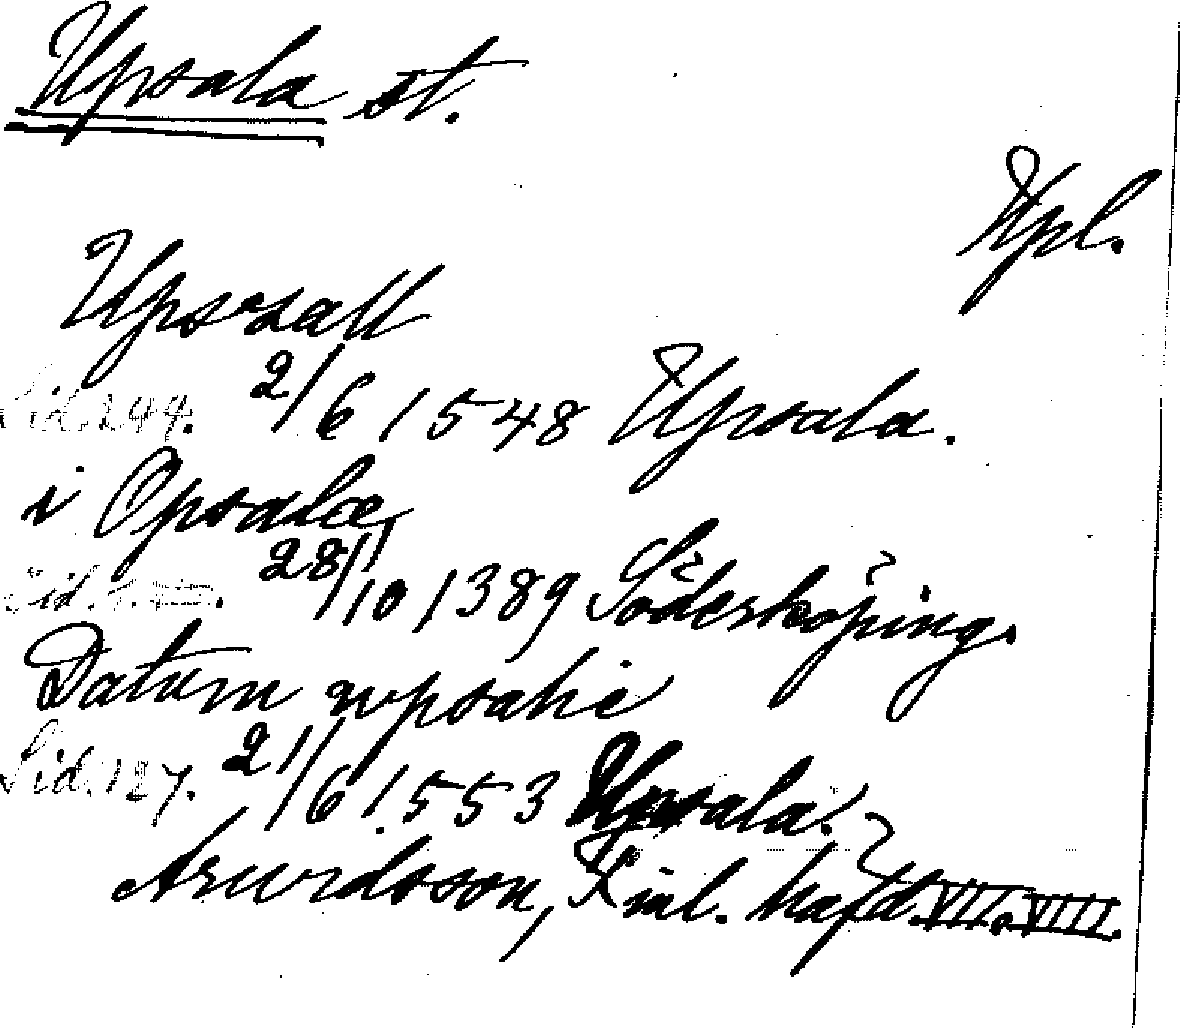 Upsala st.
Upl.
Upszall
Sid. 244. 2/6 1548 Upsala.
i Opsalæ
Sid. 28/10 1389 Söderköping.
Datum wpsalie
Sid. 127. 21/6 1553 Upsala.
Arwidsson, Finl. häfd. VII. VIII.